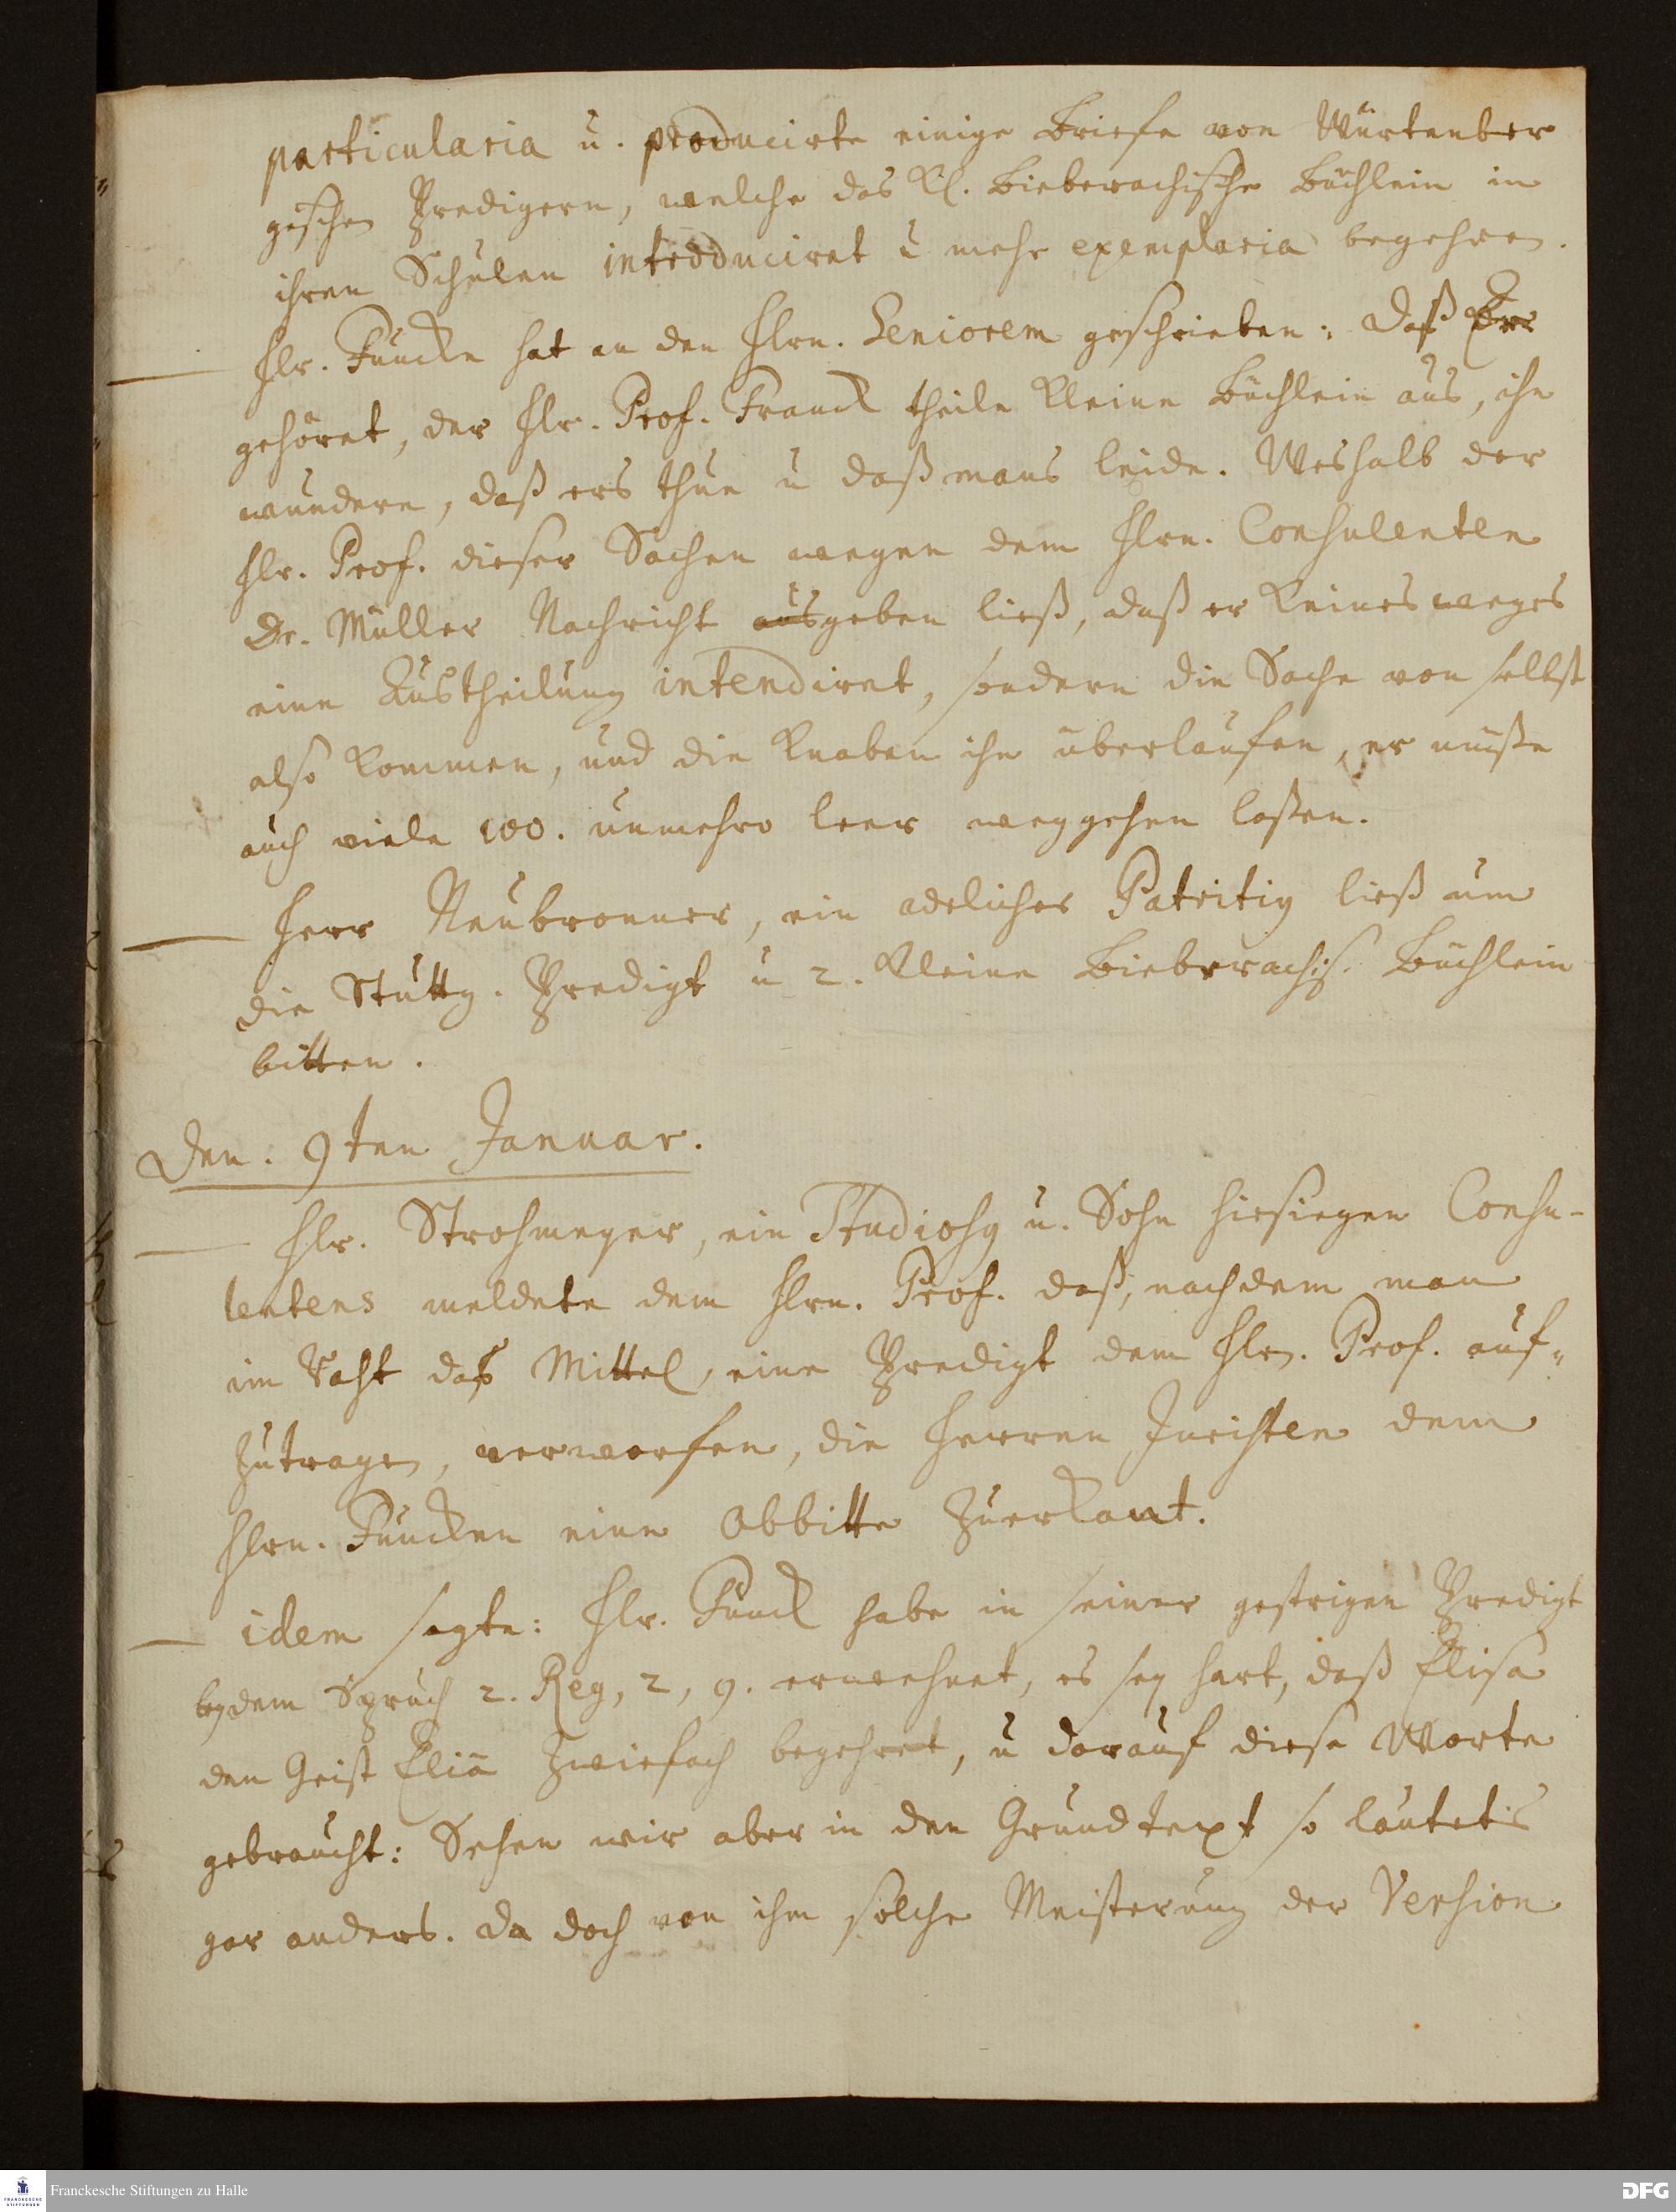 particularia u. producirte einige Briefe von Würtenber
gischen Predigern, welche das Kl. Bieberachische Büchlein in
ihren Schulen introduciret u mehr exemplaria begehren.
Hr. Funcke hat an den Hrn. Seniorem geschrieben: Daß Er
gehöret, der Hr. Prof. Franck theile kleine Büchlein aus, ihn
wundere, daß ers thue u daß mans leide. Weshalb der
Hr. Prof. dieser Sachen wegen dem Hrn. Consulenten
Dr. Müller Nachricht ausgeben ließ, daß er keines weges
eine Austheilung intendiret, sondern die Sache von selbst
also kommen, und die Knaben ihn überlaufen, er müße
auch viele 100. nunmehro leer weggehen laßen.
Herr Neubronner, ein adelicher Patritiq ließ um
die Stuttg. Predigt u 2. kleine Bieberachis. Büchlein
bitten.
Den. 9ten Januar.
Hr. Strohmeyer, ein Studiosq u. Sohn hiesiegen Consu-
lentens meldete dem Hrn. Prof. daß, nachdem man
im Raht das Mittel, eine Predigt dem Hrn. Prof. auf-
zutragen, verworfen, die Herren Juristen dem
Hrn. Funcken eine Abbitte zuerkant.
idem sagte: Hr. Funck habe in seiner gestrigen Predigt
bey dem Spruch 2. Reg, 2, 9. erwehnet, es sey hart, daß Elisa
den Geist Eliä zwiefach begehret, u darauf diese Worte
gebraucht: Sehen wir aber in den Grundtext so lautets
gar anders. Da doch von ihm solche Meisterung der Version
Franckesche Stiftungen zu Halle
DFG